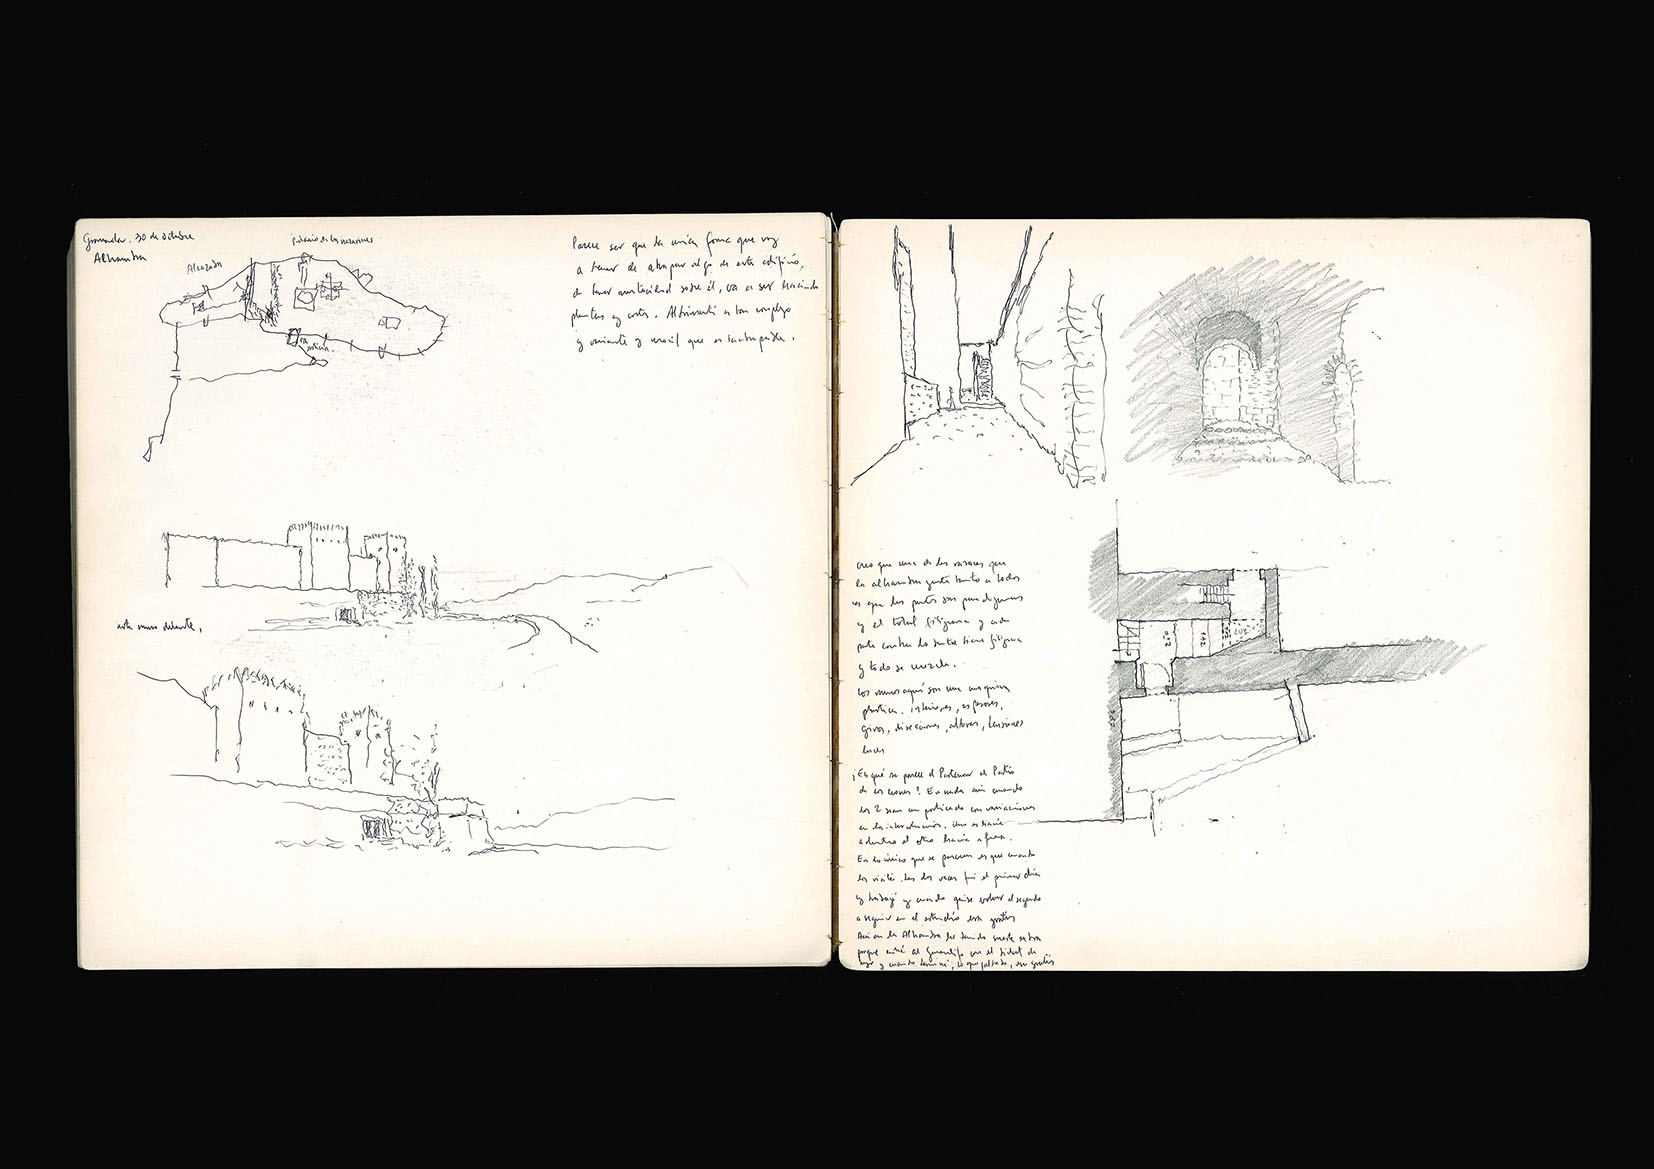 Granada. 30 de octubre
Alhambra
Palacio de los nazaríes
Alcazaba
Parece ser que la única forma que voy
a tener de atrapar algo de este edificio,
de tener autoridad sobre él, va a ser haciendo
plantas y cortes. Al infinito es tan complejo
y variante y que es inatrapable.
este muro delante,
creo que una de las razones que
la alhambra guste tanto a todos
es que las partes son paradigmas
y el total filigrana y cada
parte contra lo junto tiene filigrana
y todo se mezcla.
los muros aquí son una máquina
plástica. interiores, espesores,
giros, direcciones, alturas, tensiones
luces
¿En qué se parece el Partenon al Patio
de los leones? En nada aún cuando
los 2 sean un porticado con variaciones
en los intercolumnios. Uno es hacia
adentro el otro hacia afuera.
En lo único que se parecen es que cuando
los visité, las dos veces fui el primer día
y trabajé y cuando quise volver el segundo
a seguir en el estudio era gratis
Aún en la Alhambra he tenido suerte extra
porque entré al Generalife con el ticket de
ayer y cuando terminé, lo que faltaba, era gratis